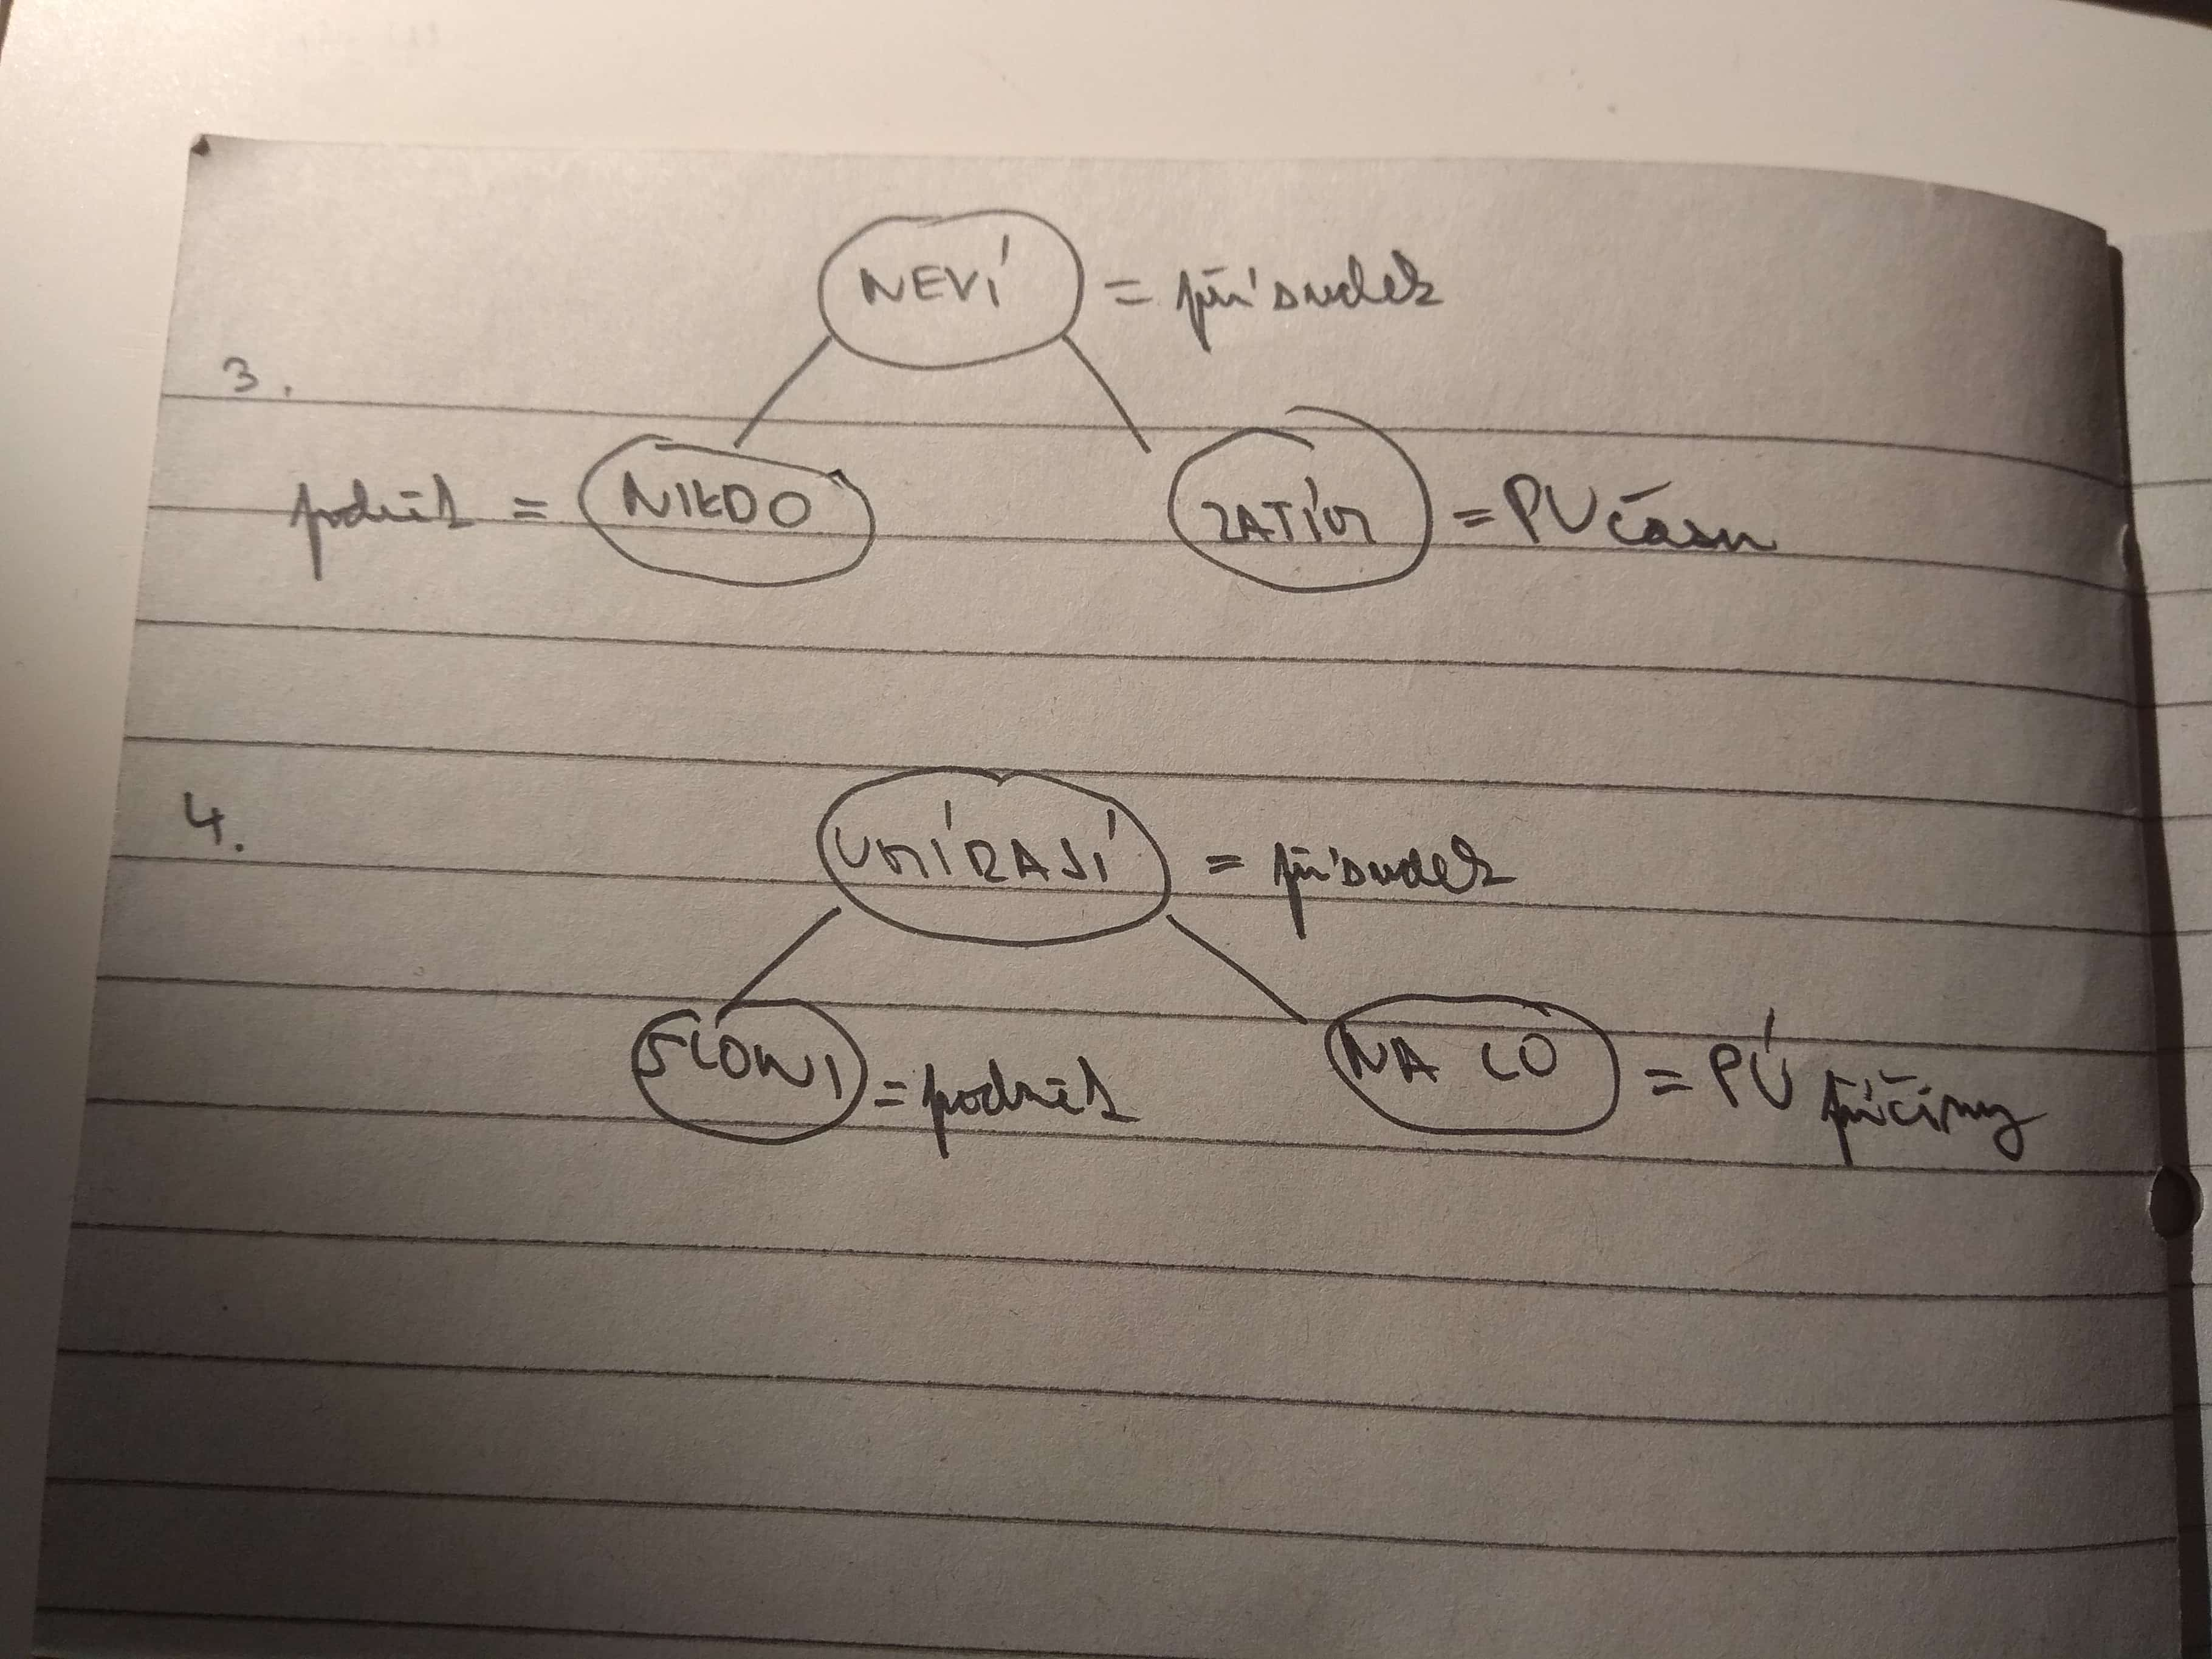 NEVÍ = přísudek
3.
podmět = NIKDO ZATÍM = PU času
4.
UMÍRAJÍ = přísudek
SLONI = podmět NA CO = PÚ příčiny